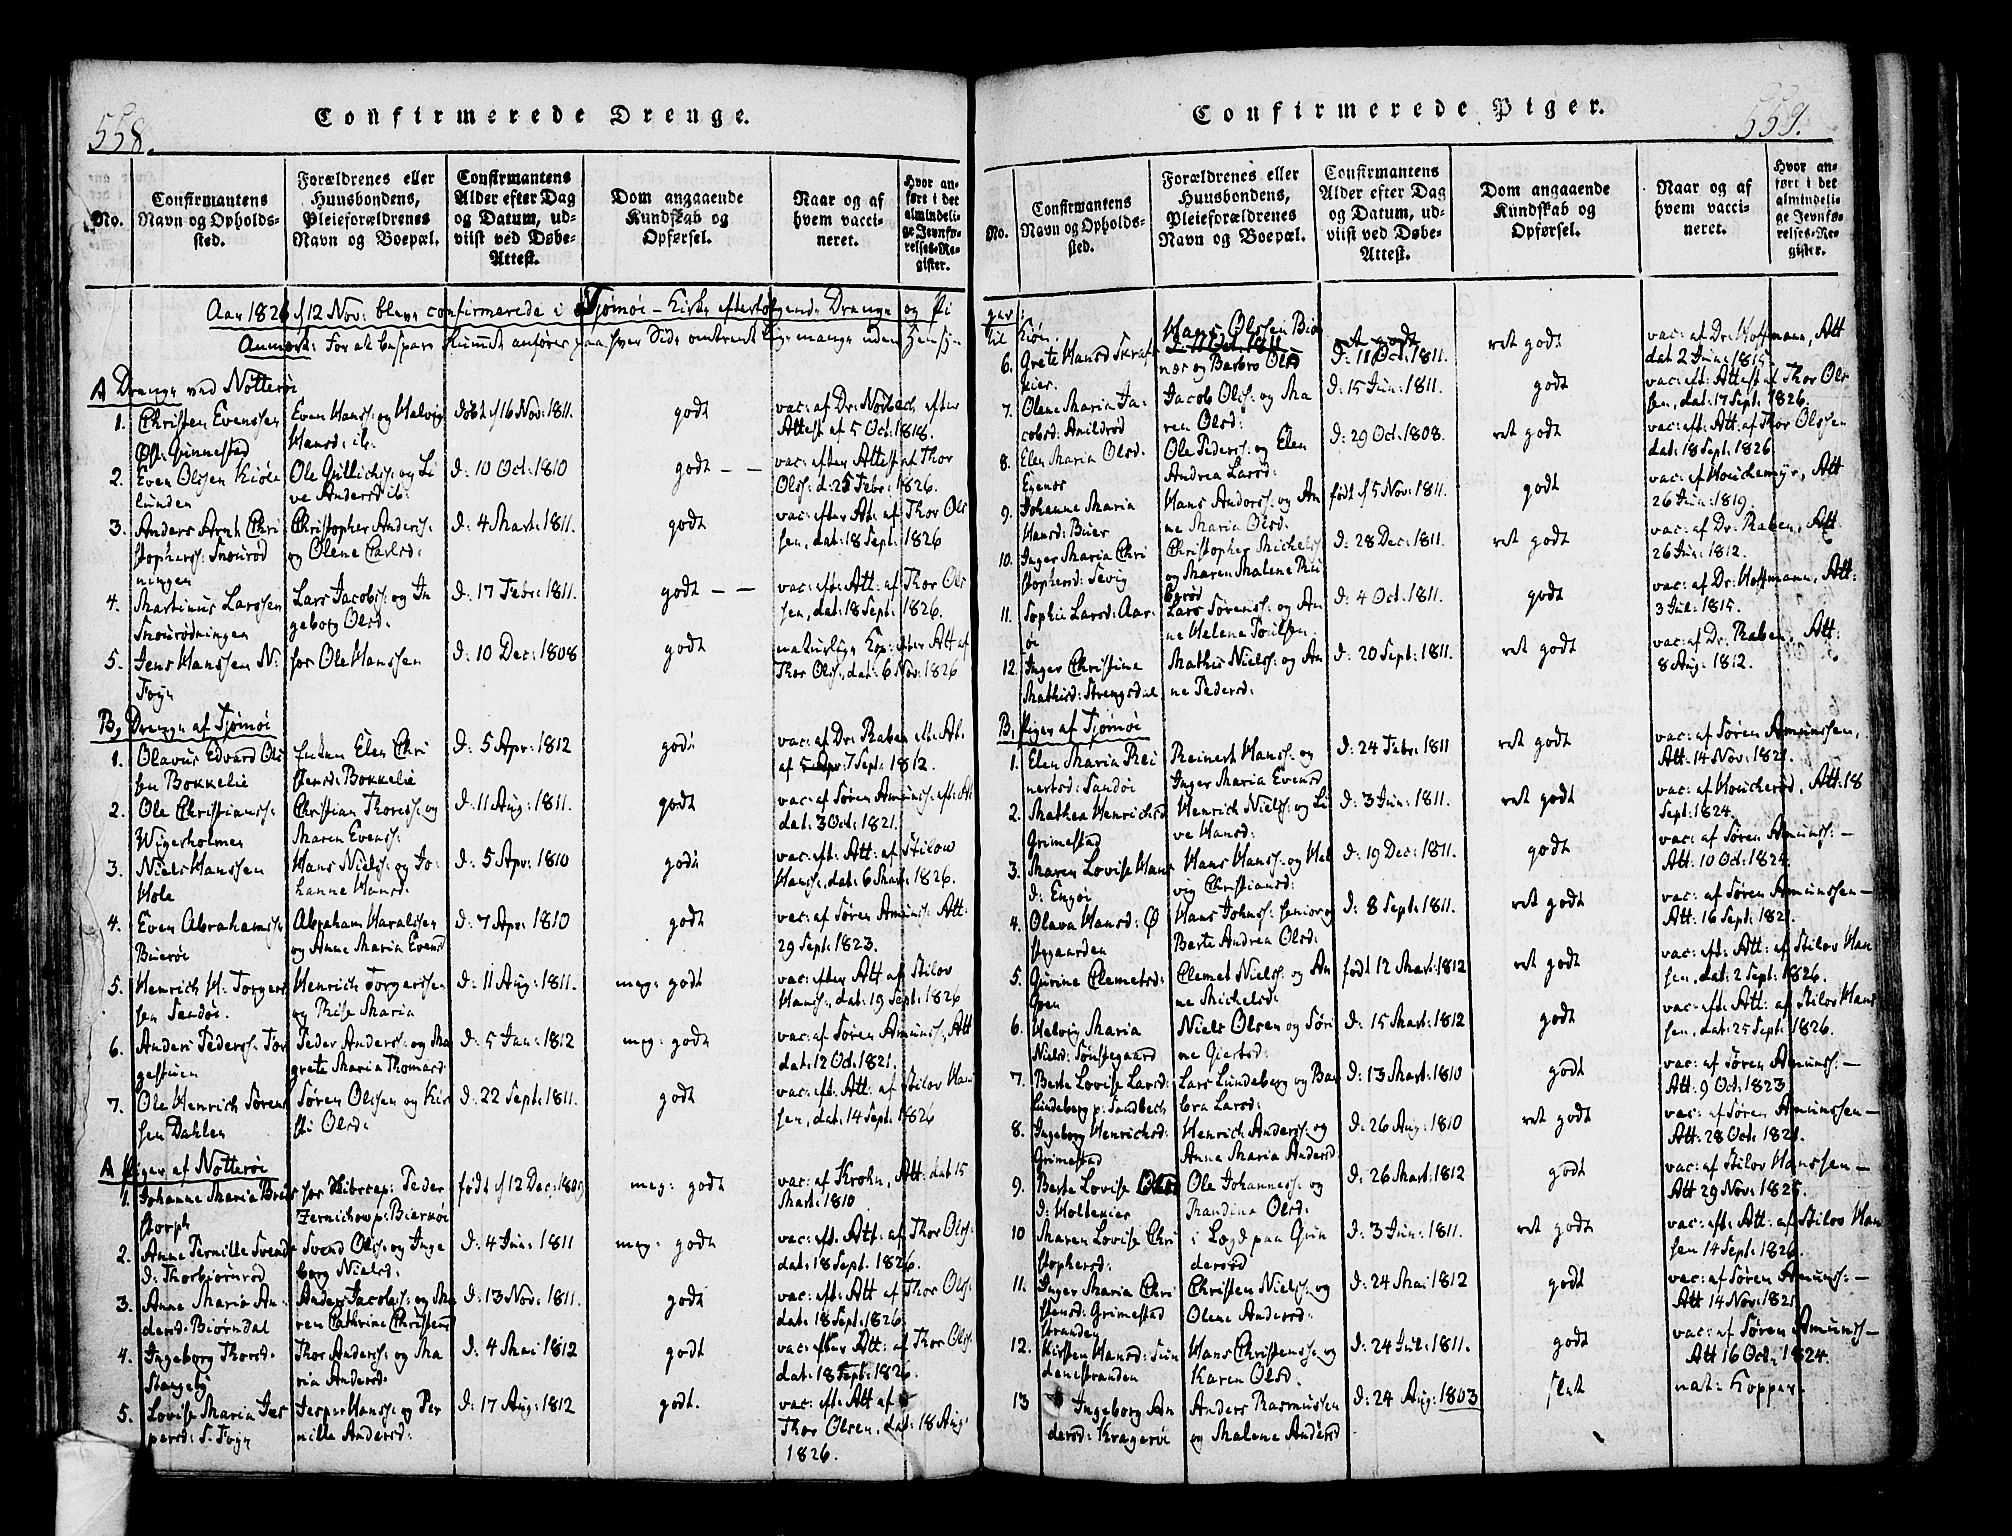 558.
Confirmerede Drenge.
No.
Confirmantens Navn og Opholds-sted.
Forældrenes eller Huusbondens, Pleieforældrenes Navn og Boepæl.
Confirmantens Alder efter Dag og Datum, ud-viist ved Døbe-Attest.
Dom angaaende Kundskab og Opførsel.
Naar og af hvem vacci-neret.
Hvor an-ført i det almindeli-ge Jevnfø-relses-Re-gister.
Aar 1826 d 12 Nov: bleve confirmerede i Tjømøi-Kirke efterfølgende Drenge og Pi
Anmærk: For at bespare Rummet anføres paa hver Side omtrent lige mange uden Hensyn
A Drenge ved Nøtterøe
1. Christen Evenssen Øst: Ginnestad | Even Hanss: og Helvig Hansd: ib. | døbt d 16 Nov: 1811. | godt | vac: af Dr: Norbech efter Attest af 5 Oct: 1818.
2. Even Olssen Kiøle lunden | Ole Gullichs: og Li ve Andersd ib: | d: 10 Oct: 1810 | godt - - | vac: efter Attest af Thor Olss: d: 25 Febr: 1826.
3. Anders Arnt Chri stophers: Snourød ningen | Christopher Anders: og Olene Carlsd: | d: 4 Mart: 1811. | godt | vac: efter Att: af Thor Ols sen, dat: 18 Sept: 1826
4. Martinus Larssen Snourødningen | Lars Jacobs: og In geborg Olsd: | d: 17 Febr: 1811. | godt - - | vac: eft: Att: af Thor Ols sen, dat: 18 Sept: 1826.
5. Jens Hanssen N: Foyn | hos Ole Hanssen | d: 10 Dec: 1808 | godt | naturlige Kop: efter Att af Thor Olss: dat: 6 Nov: 1826
B, Drenge af Tjømøi
1. Olavus Edvard Ols sen Bokkelie | Enken Elen Chri stensd: Bokkelie | d: 5 Apr: 1812 | godt | vac: af Dr: Raben eft: At. af 7 Sept: 1812.
2. Ole Christianss: Wigesholmen | Christian Thoress: og Maren Evenss: | d: 11 Aug: 1811. | godt | vac: af Søren Amunss: eft: At dat: 3 Oct: 1821.
3. Niels Hanssen Hole | Hans Niels: og Jo hanne Hansd. | d: 5 Apr: 1810 | godt | vac: eft: Att: af Stilov Hanss: dat: 6 Mart: 1826.
4. Even Abrahamssen Buerøe | Abraham Haralssen og Anne Maria Evensd | d: 7 Apr: 1810 | godt | vac: af Søren Amunss: Att: 29 Sept: 1823.
5. Henrich H: Torgers sen Sandøe. | Henrich Torgerssen og Thise Maria | d: 11 Aug: 1811. | meg: godt | vac: efter Att af Stilov Hanss:, dat: 19 Sept: 1826
6. Anders Pederss: Tor gestuen | Peder Anderss: og Ma grete Maria Thomasd: | d: 5 Jan: 1812 | meg: godt | vac: af Søren Amunss:, Att dat: 12 Oct: 1821.
7. Ole Henrich Sørens sen Dahlen | Søren Olssen og Kir sti Olsd: | d: 22 Sept: 1811. | godt | vac: eft: Att: af Stilov Han sen, dat: 14 Sept: 1826
A Piger af Nøtterøi
1. Johanne Maria Brus storph | hos Peder Zernichow p: Bierkøe | født d 12 Dec: 1809 | meg: godt | vac: af Krohn, Att: dat 15 Mart: 1810
2. Anne Pernille Svends d: Thorbiørnrød | Svend Olss: og Inge borg Nielsd: | d: 4 Jun: 1811 | meg: godt | vac: eft: Att: af Thor Olss: dat: 18 Sept. 1826.
3. Anne Maria An- dersd: Biørndal | Anders Jacobs: og Ma ren Cathrine Christensd | d: 13 Nov: 1811. | godt | vac: eft: Att af Thor Olss: dat: 18 Sept: 1826.
4. Ingeborg Thorsd. Stangeby | Thor Anderss: og Ma ria Andersd. | d: 4 Mai 1812 | godt | vac: efter Att: af Thor Olss: dat: 18 Sept: 1826.
5. Lovise Maria Jes persd: S. Foyn | Jesper Hanss: og Per nille Andersd: | d: 17 Aug: 1812 | godt. | vac: eft: Att af Thor Olsen, dat: 18 Aug: 1826.
559.
Confirmerede Piger.
No.
Confirmantens Navn og Opholds-sted.
Forældrenes eller Huusbondens, Pleieforældrenes Navn og Boepæl.
Confirmantens Alder efter Dag og Datum, ud-viist ved Døbe-Attest.
Dom angaaende Kundskab og Opførsel.
Naar og af hvem vacci-neret.
Hvor an-ført i det almindeli-ge Jevnfø-relses-Re-gister.
ger:
til Kiøn.
6. Grete Hansd | Hans Olssen og Barbro Olsd | d: 11 Oct: 1811. | ret godt | vac: af Dr: Hoffmann, Att dat 2 Jun: 1815.
7. Olene Maria Ja- cobsd: Arildrød | Jacob Olss: og Ma ren Olsd: | d: 15 Jun: 1811. | godt | vac: eft: Attest af Thor Ols sen, dat: 17 Sept: 1826.
8. Elen Maria Olsd. Egenes | Ole Pederss: og Elen Andrea Larsd: | d: 29 Oct: 1808. | ret godt | vac: eft: Att: af Thor Olssen dat: 18 Sept: 1826
9. Johanne Maria Hansd: Buer | Hans Anderss: og An ne Maria Olsd: | født d 5 Nov: 1811. | godt | vac: af Att 26 Jun: 1819.
10. Inger Maria Chri stophersd: Sevig | Christopher Michelss og Maren Malene | d: 28 Dec: 1811. | ret godt | vac: af Dr: Raben, Att. 26 Jun: 1812.
11. Sophie Larsd: Aar- øe | Lars Sørenss: og An ne Helene Poulsen. | d: 4 Oct: 1811. | godt | vac: af Dr: Hoffmann, Att: 3 Jul: 1815.
12. Inger Christine Mathisd: Strengsdal | Mathis Nielss: og An ne Pedersd: | d: 20 Sept: 1811. | ret godt | vac: af Dr. Raben, Att: 8 Aug: 1812.
B, Piger af Tjømøi
1. Elen Maria Rei nertsd: Sandøi | Reinert Hanss: og Inger Maria Evensd | d: 24 Febr: 1811 | ret godt | vac: af Søren Amunssen, Att: 14 Nov: 1821.
2. Mathea Henrichsd Grimestad | Henrich Nielss: og Li ve Hansd: | d: 3 Jun: 1811. | ret godt | vac: af Att: 18 Sept: 1824.
3. Maren Lovise Hans d: Engøi | Hans Hanss: og Hel vig Christiansd: | d: 19 Dec: 1811. | godt | vac: af Søren Amunss: - Att: 10 Oct: 1824.
4. Olava Hansd: Ø stgaarden | Hans Johnss: senior og Berte Andrea Olsd: | d: 8 Sept: 1811. | ret godt | vac: af Søren Amunssen - Att: 16 Sept: 1821.
5. Gurine Clemetsd: | Clemet Nielss: og An ne Michelsd: | født 12 Mart: 1812 | ret godt | vac: eft: Att: af Stilov Han sen, dat: 2 Sept: 1826.
6. Helvig Maria Nielsd: Sønstegaard | Niels Olsen og Siri ne Giertsd: | d: 15 Mart: 1812 | godt | vac: eft: Att: af Stilov Hans sen, dat: 25 Sept: 1826.
7. Berte Lovise Larsd: Lundeberg p: Sandbech | Lars Lundeberg og Bar bra Larsd: | d: 13 Mart: 1810 | godt | vac: af Søren Amunss: - Att: 9 Oct: 1823
8. Ingeborg Henrichsd: Grimestad | Henrich Anderss: og Anna Maria Andersd | d: 26 Aug: 1810 | ret godt | vac: af Søren Amunssen - Att: 28 Oct: 1821.
9. Berte Lovise Ols d: Holtekier | Ole Johanness: og Randina Olsd: | d: 26 Mart: 1812 | godt | vac: af Stilov Hanssen - Att 29 Nov: 1825.
10 Maren Lovise Chri stophersd: | i Logd paa Grin derød | d: 3 Jun: 1811. | ret godt | vac: eft: Att: af Stilov Han sen 14 Sept: 1826.
11. Inger Maria Chri stensd: Grimestad stranden | Christen Nielss: og Olene Andersd: | d: 24 Mai 1812 | godt | vac: af Søren Amunss: - Att 14 Nov: 1821
12. Kirsten Hansd: Sun denestranden | Hans Christenss: og Karen Olsd. | d: 24 Jul: 1811. | godt | vac: af Søren Amunss - Att 16 Oct: 1824.
13 Ingeborg An dersd: Kragerøe | Anders Rasmussen og Malene Andersd | d: 24 Aug: 1803 | slet | nat: Kopper.